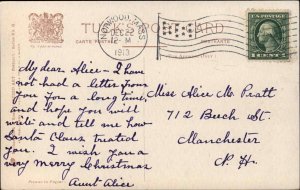 TUCK'S POST CARD
CARTE POSTALE
NORWOOD, MASS.
DEC 22
12 M
1913
U.S. POSTAGE
1 CENT 1
My dear Alice - I have
not had a letter from
you for a long time,
and hope you will
write and tell me how
Santa Claus treated
you. I wish you a
very merry Christmas
Aunt Alice
Miss Alice M. Pratt
712 Beech St.
Manchester
N. H.